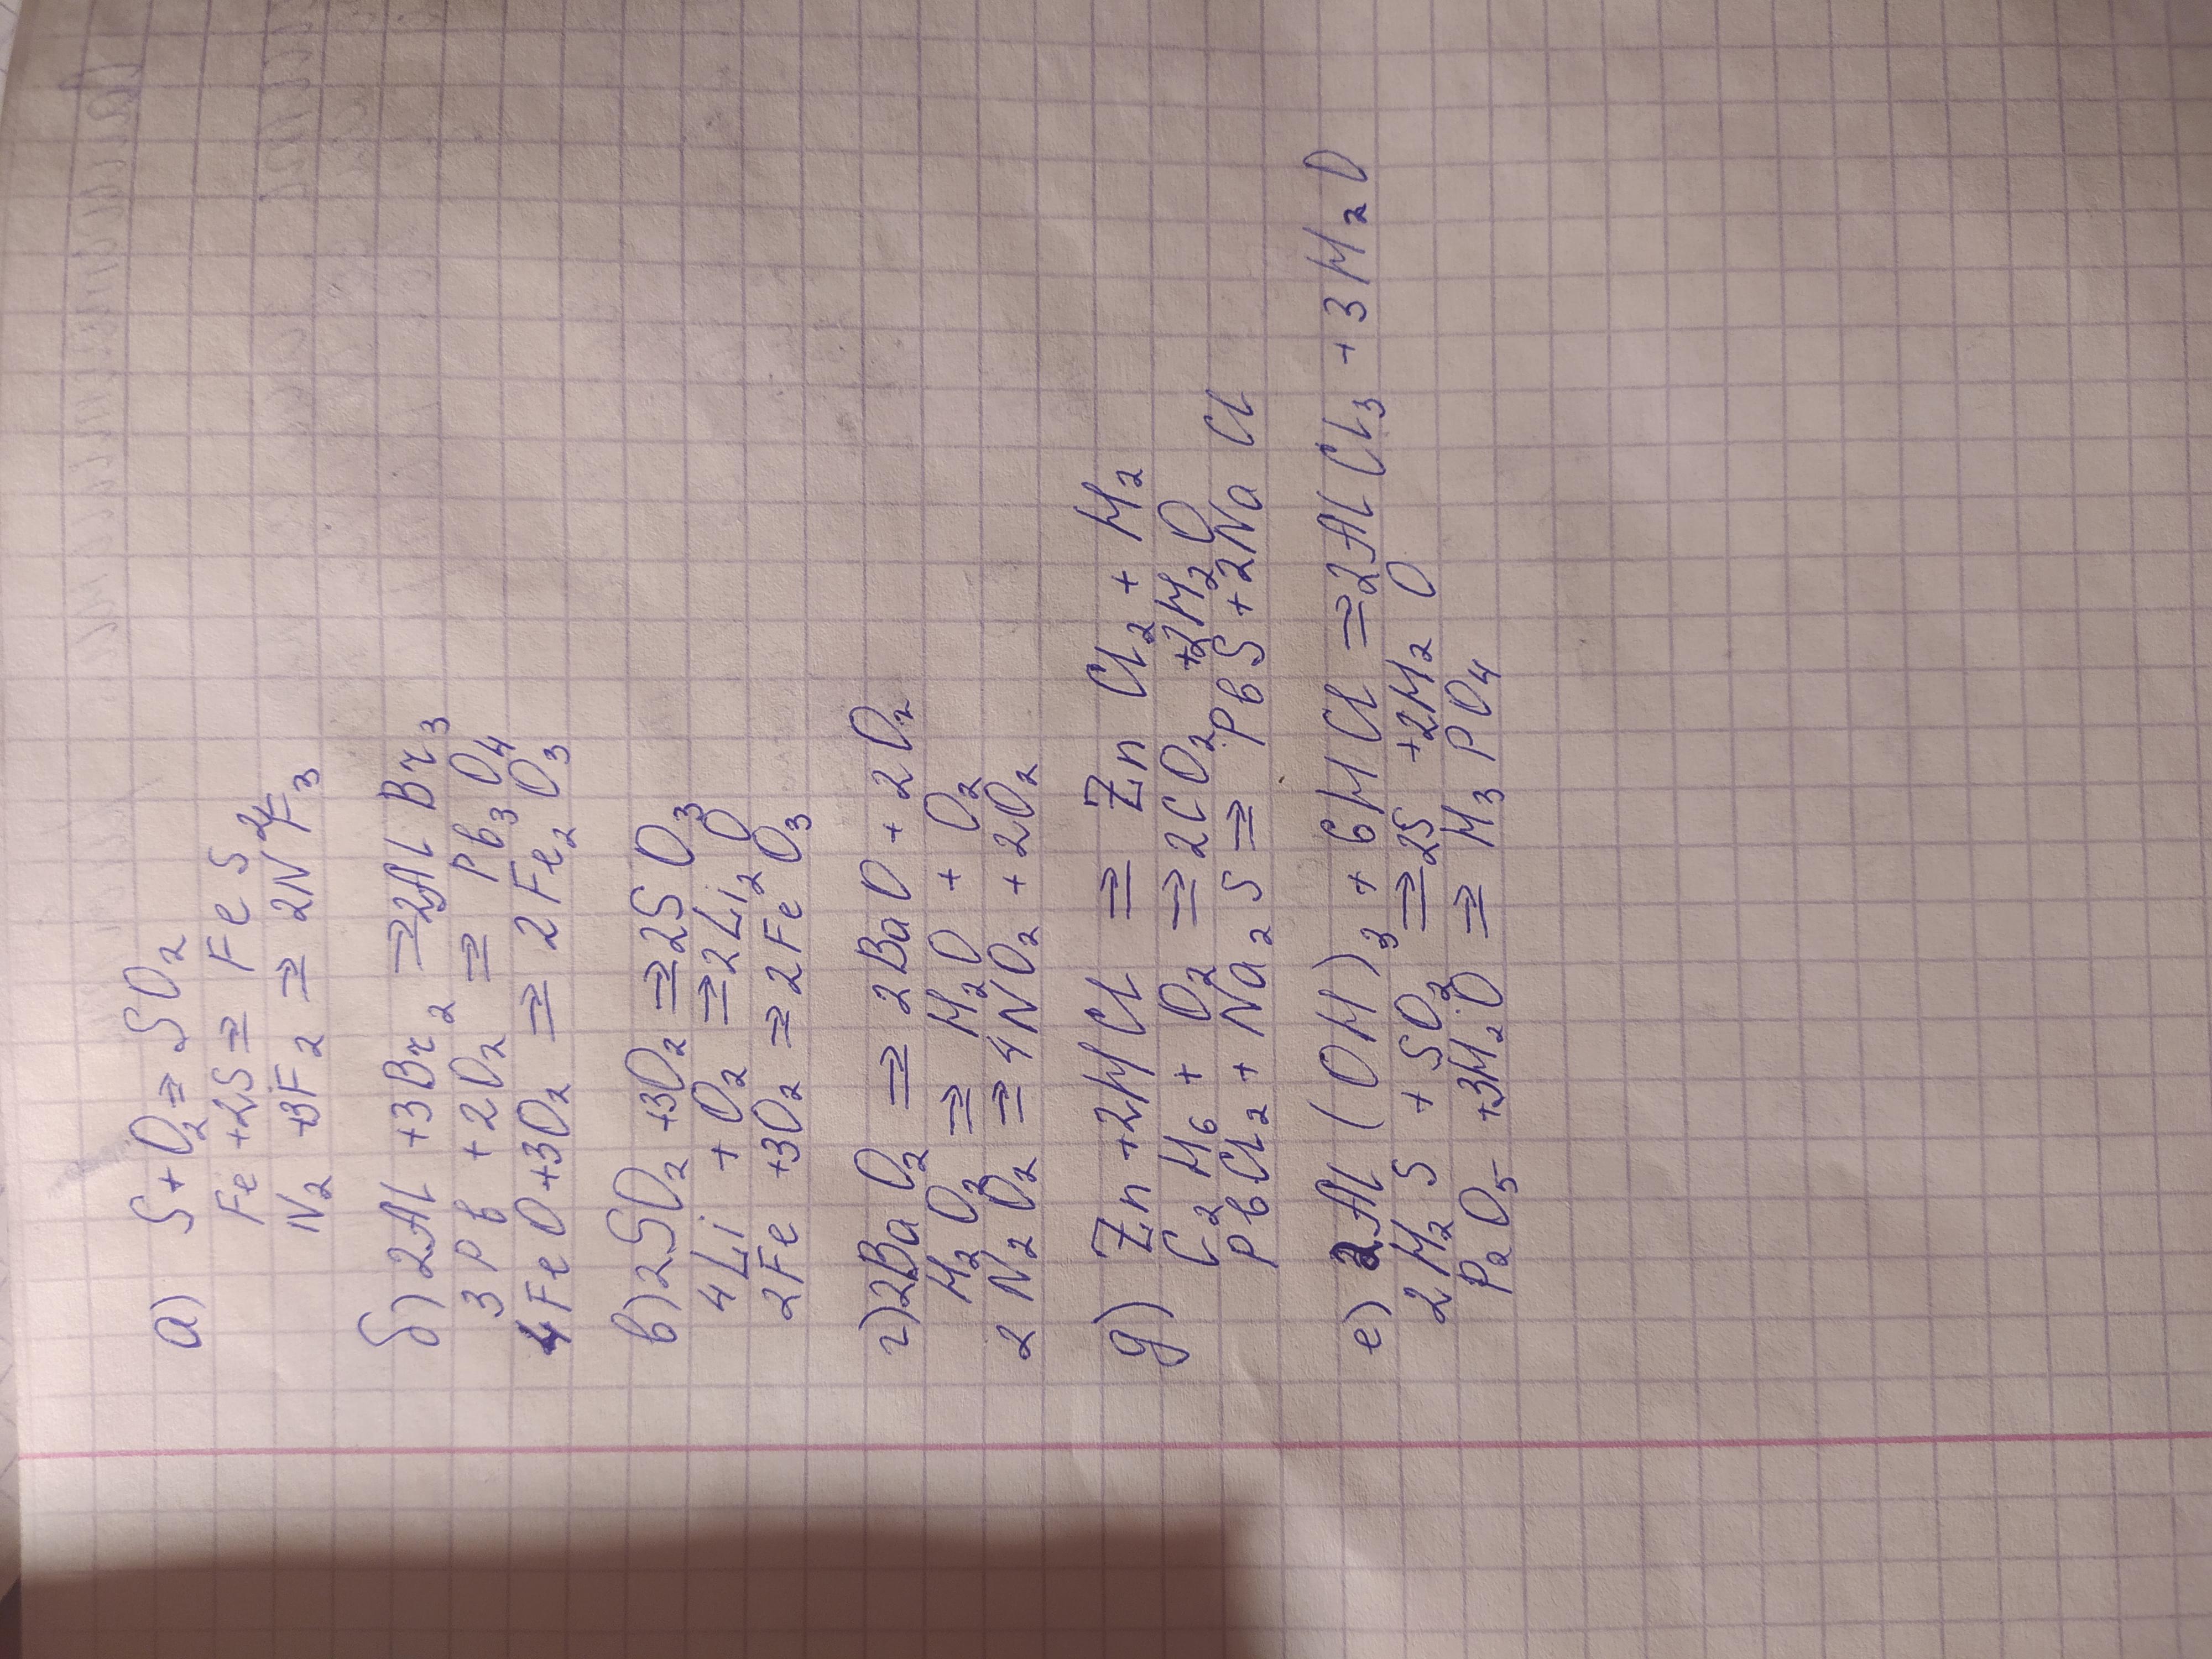 а) S + O₂ = SO₂
Fe + 2S = FeS
N₂ + 3F₂ = 2NF₃
б) 2Al + 3Br₂ = 2AlBr₃
3Pb + 2O₂ = Pb₃O₄
4FeO + 3O₂ = 2Fe₂O₃
в) 2SO₂ + 3O₂ = 2SO₃
4Li + O₂ = 2Li₂O
2Fe + 3O₂ = 2FeO₃
г) 2BaO₂ = 2BaO + 2O₂
H₂O₂ = H₂O + O₂
2N₂O₂ = 4NO₂ + 2O₂
д) Zn + 2HCl = ZnCl₂ + H₂
C₂H₆ + O₂ = 2CO₂ + 2H₂O
PbCl₂ + Na₂S = PbS + 2NaCl
е) 2Al(OH)₃ + 6HCl = 2AlCl₃ + 3H₂O
2H₂S + SO₂ = 2S + 2H₂O
P₂O₅ + 3H₂O = H₃PO₄